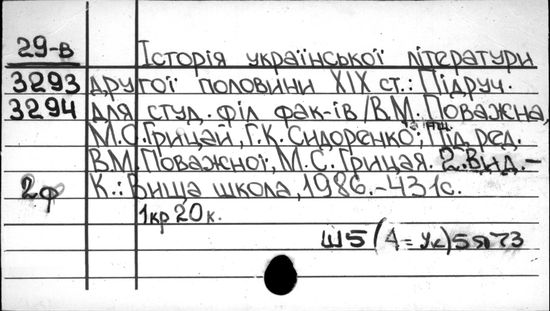 29-в Історія української літератури
3293 другої половини XIX ст.: Підруч.
3294 для студ. філ фак-ів / В.М. Поважна,
М.С. Грицай, Г.К. Сидоренко; Під ред.
В.М. Поважної, М.С. Грицая. 2.Вид.-
2ф К.: Вища школа, 1986.-431с.
1кр 20 к.
Ш5(4=Ук)5я73